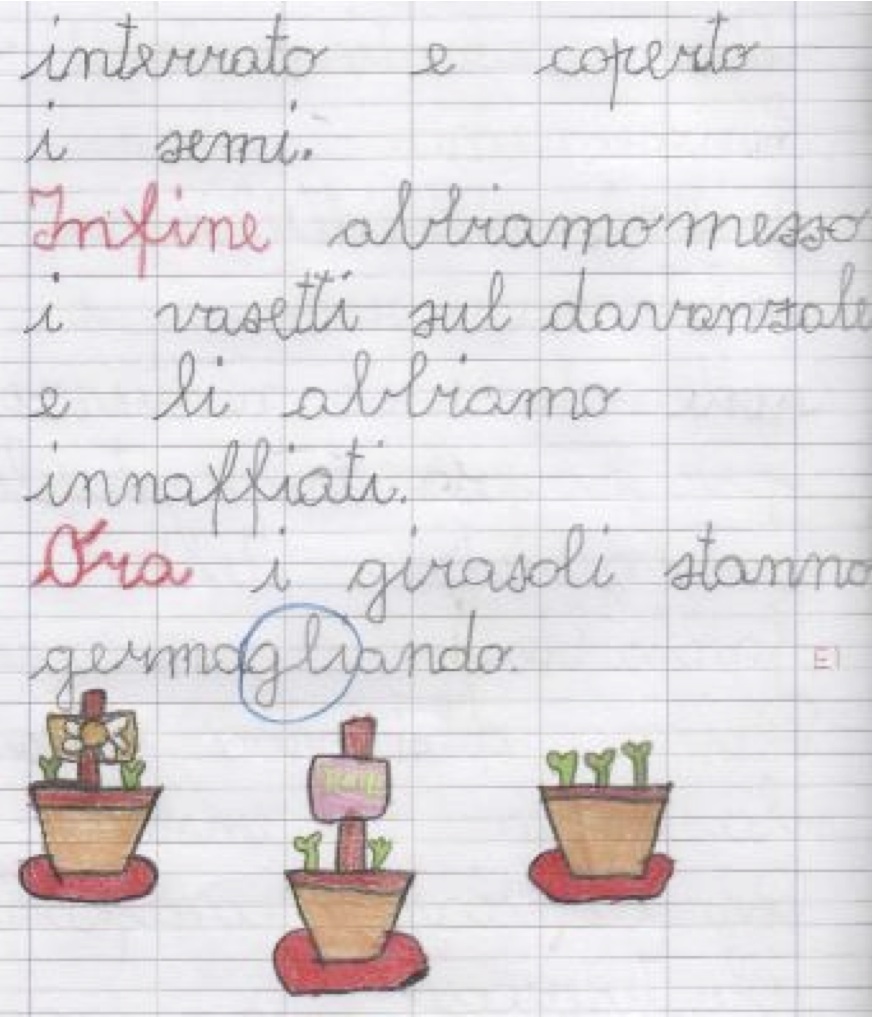 interrato e coperto
i semi.
Infine abbiamo messo
i vasetti sul davanzale
e li abbiamo
innaffiati.
Ora i girasoli stanno
germogliando.